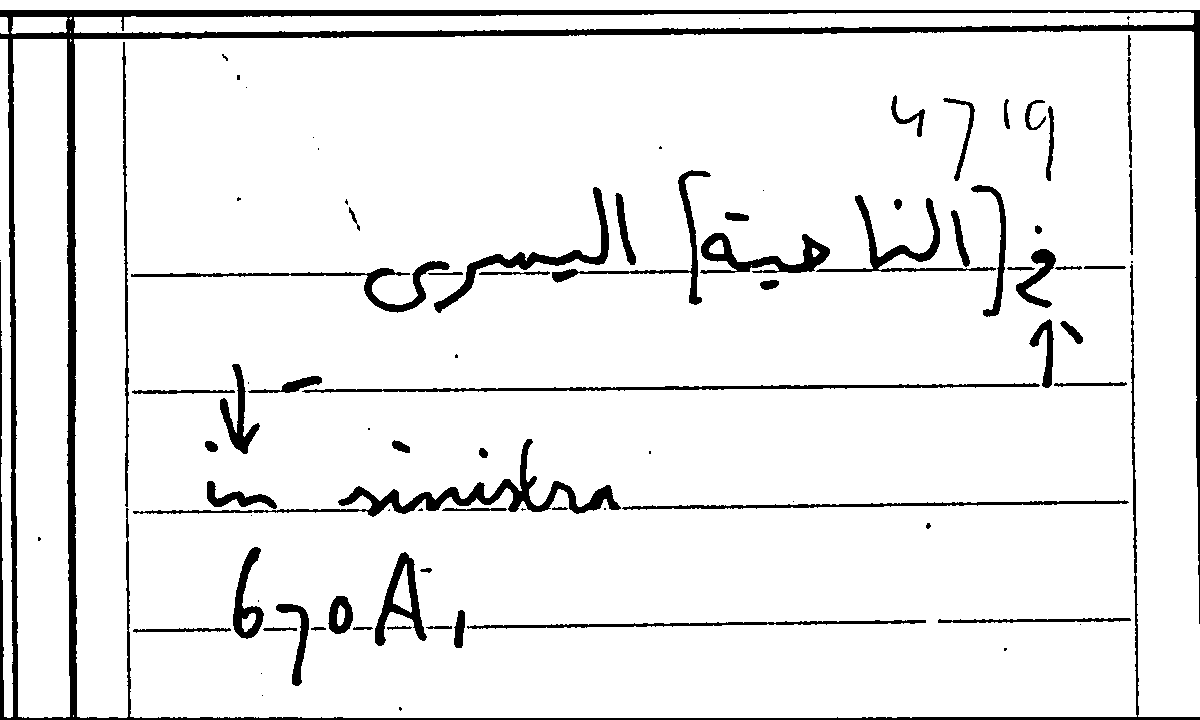 47 19
في [الناحية] اليسرى
in sinistra
670A1